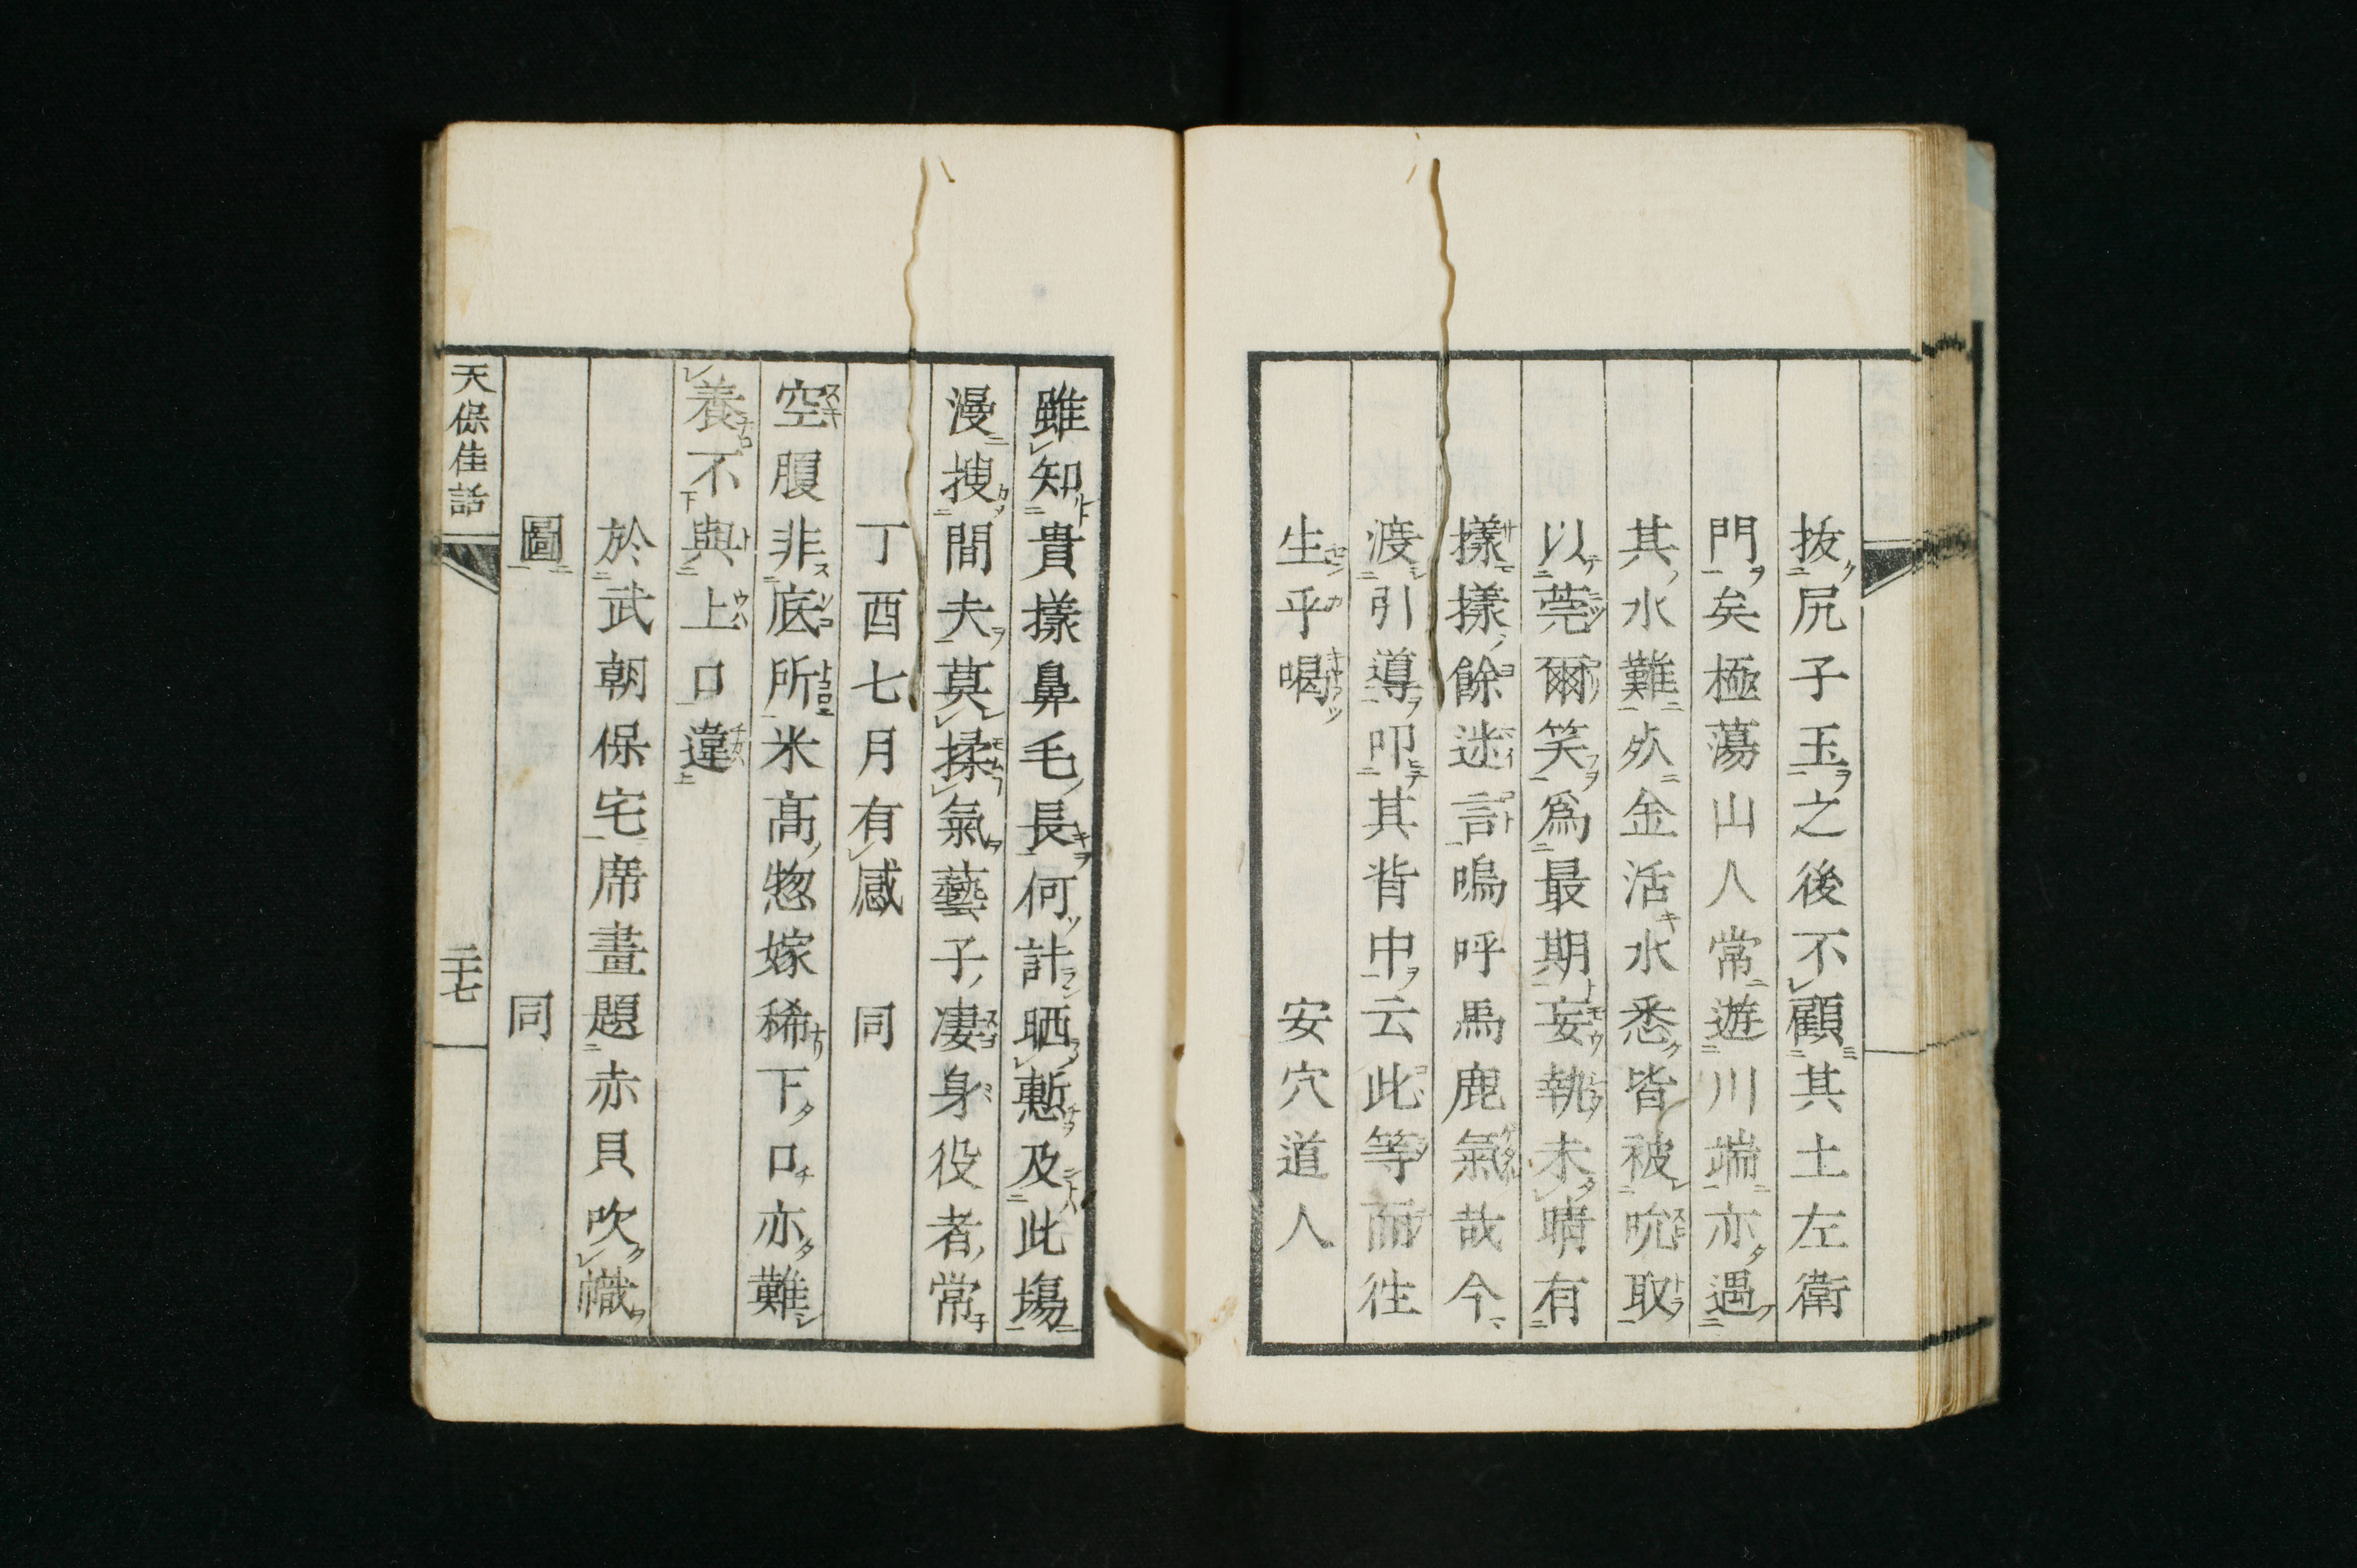 抜尻子玉之後不顧其土左衛
門矣極蕩山人常遊川端亦遇
其水難𠩄金活水悉皆被吮取
以莞爾笑爲最期妄執未晴有
㨾㨾餘迷言嗚呼馬鹿氣哉今
渡引導叩其背中云此等而徃
生乎喝　安穴道人
雖知貴㨾鼻毛長何計晒慙及此塲
漫捜間夫莫揉氣藝子凄身役者常
丁酉七月有感　同
空腹非底所米髙惣嫁稀下口亦難
養不與上口違
於武朝保宅席畫題赤貝吹幟
圖　同
天保佳話
二十七